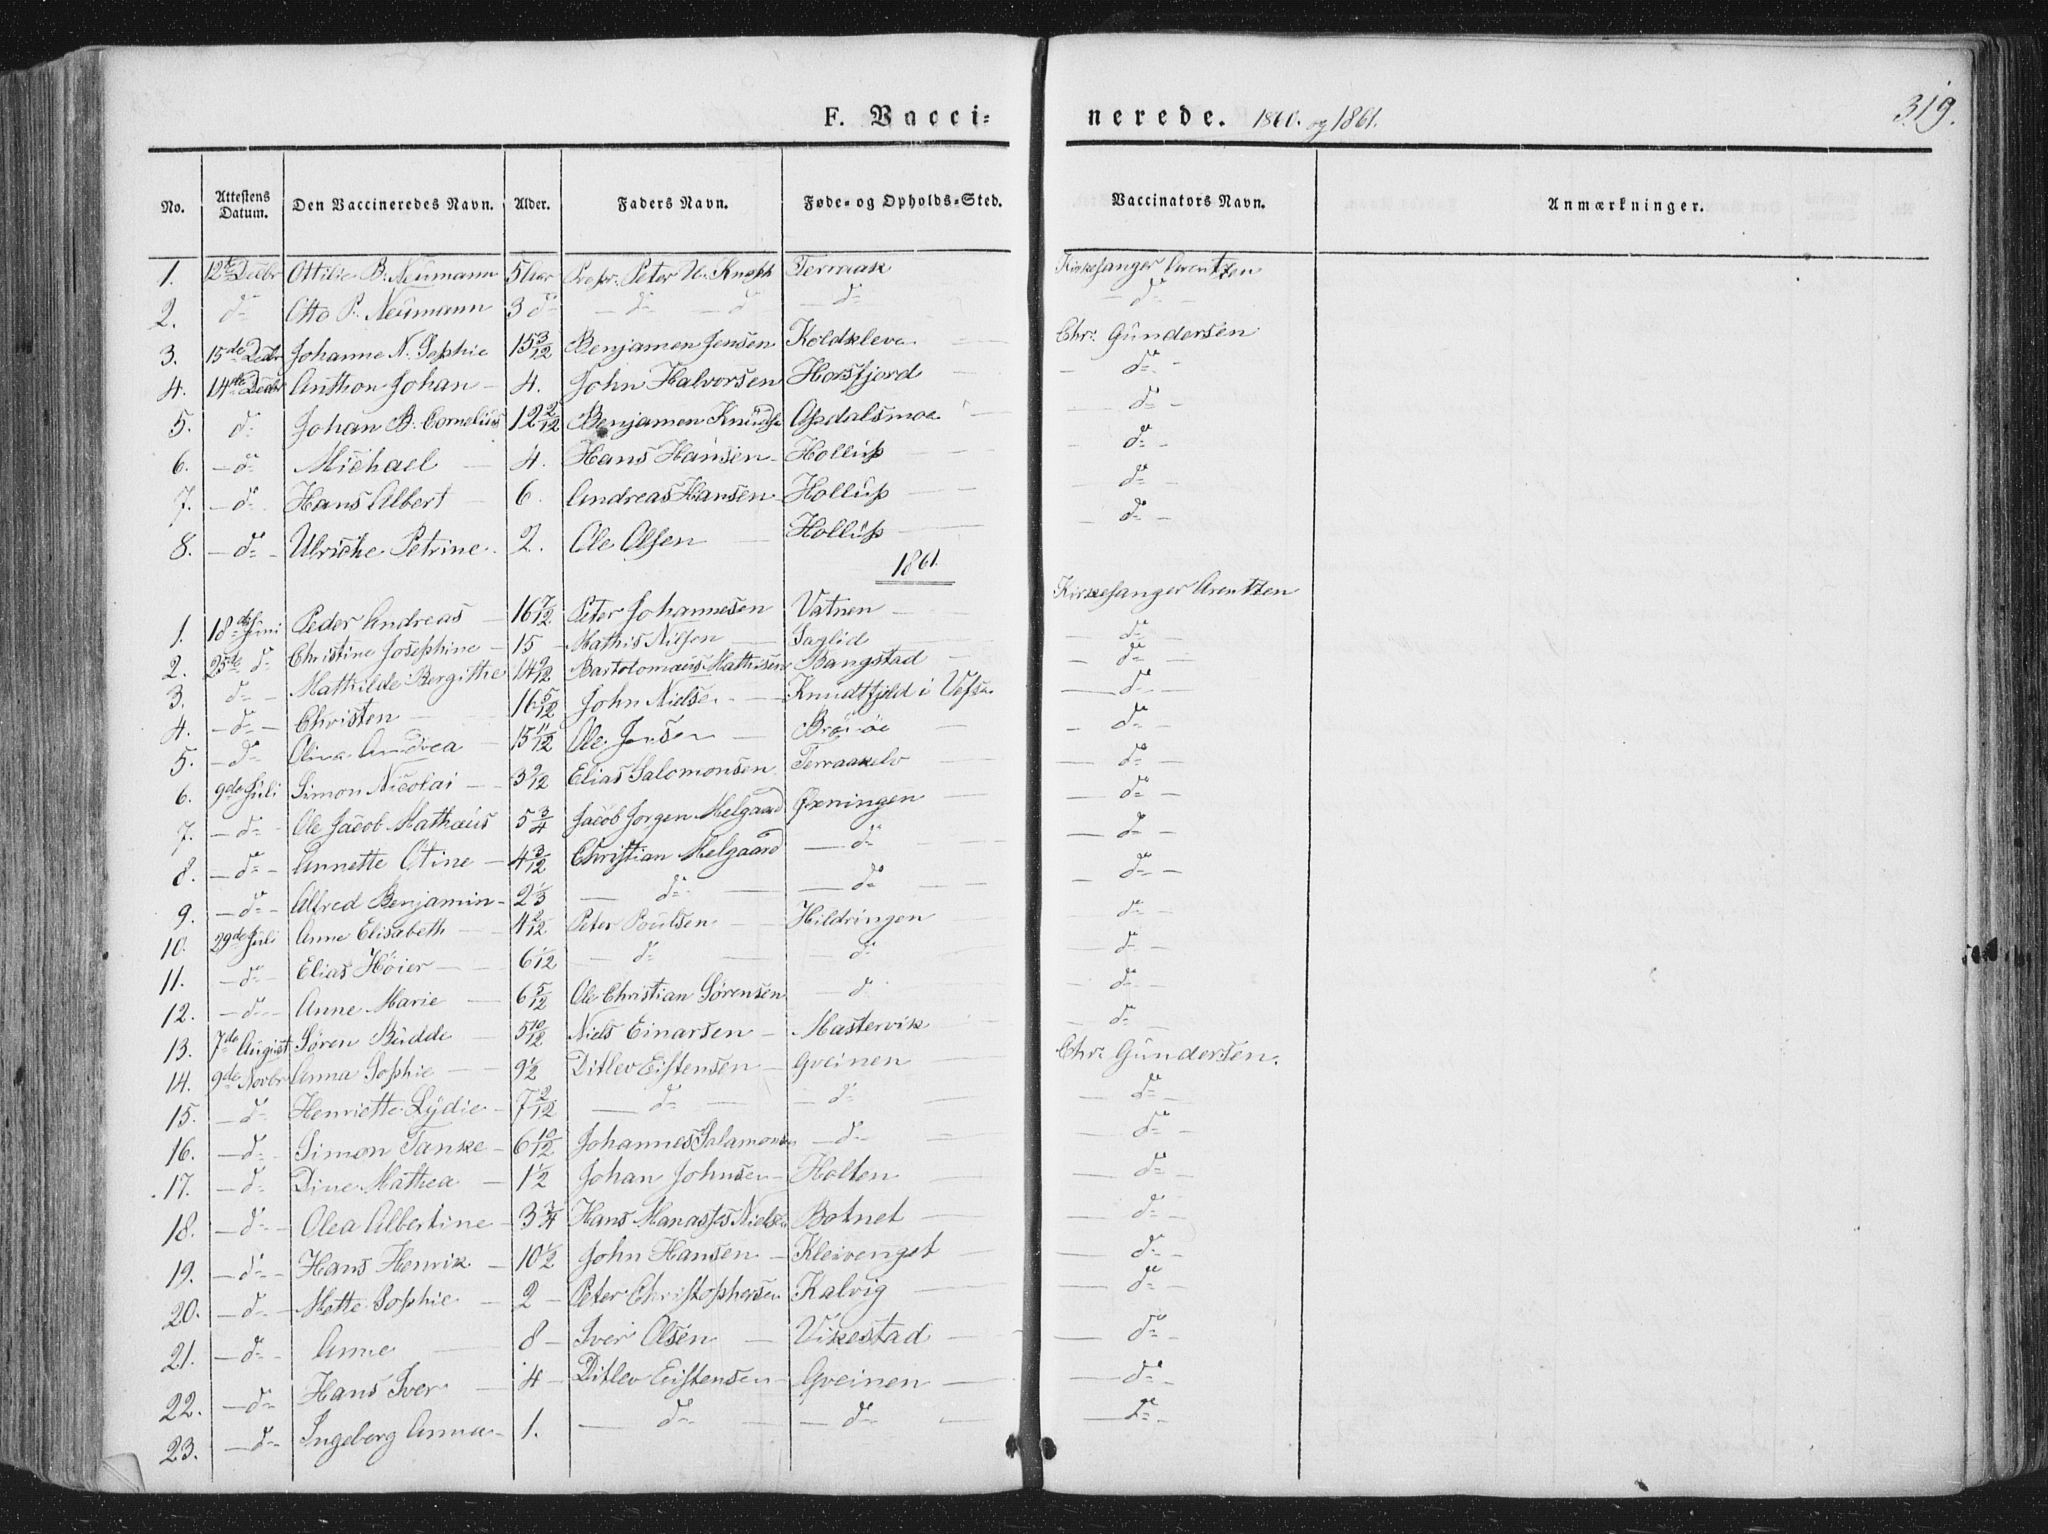 F. Vacci= nerede. 1860. og 1861. 319.
No. Attestens Datum. Den Vaccineredes Navn. Alder. Faders Navn. Føde= og Opholds=Sted. Vaccinators Navn. Anmærkninger.
1. 12te Decbr Ottilie B. Neumann 5 Aar Peter Terraak Kirkesanger Arentzen
2. do Otto P. Neumann 3 do — do — do — do — do —
3. 15de Decbr Johanne N. Sophie 15 3/12 Benjamen Jensen Koldkleve Chr. Gundersen
4. 14de Decbr Anthon Johan 4. John Halvorsen Horsfjord — do —
5. do Johan B. Cornelius 12 2/12 Benjamen Knuds Opdalsmoe — do —
6. — do Michael 4. Hans Hansen Hollup — do —
7. — do Hans Albert 6. Andreas Hansen Hollup — do —
8. — do — Ulriche Petrine 2. Ole Olsen Hollup — do —
1861.
1. 18de Juni Peder Andreas 16 7/12 Peter Johannesen Vatnen Kirkesanger Arentzen
2. 25de do Christine Josephine 15 Mathis Nilsen Saglid — do —
3. do Mathilde Bergithe 14 9/12 Bartolomæus Mathisen Bangstad — do —
4. — do — Christen 16 5/12 John Nielsen Knudtfjeld i Vefsen — do —
5. — do Oliva Andrea 15 11/12 Ole Jensen Brønøe — do —
6. 9de Juli Simon Nicolai 3 9/12 Elias Salomonsen Terraakelv — do —
7. — do — Ole Jacob Mathæus 5 3/4 Jacob Jørgen Melgaard Øxningen — do —
8. — do — Annette Otine 4 3/12 Christian Melgaard — do — do —
9. — do — Alfred Benjamin 2 1/3 — do — do — do —
10. 29de Juli Anne Elisabeth 4 2/12 Peter Poulsen Hildringen — do —
11. — do — Elias Høier 6 1/12 — do — do — do —
12. — do — Anne Marie 6 5/12 Ole Christian Sørensen — do — do —
13. 7de August Søren Budde 5 10/12 Niels Einarsen Mastervik — do
14. 9de Novbr Anna Sophie 9 1/2 Ditlev Eistensen Gveinen Chr. Gundersen.
15. — do Henriette Lydie 7 2/12 — do — do — do —
16. — do Simon Tanke 6 10/12 Johannes Salamons — do — do —
17. — do Dine Mathea 1 1/2 Johan Johnsen Holten — do —
18. — do — Olea Albertine 3 3/4 Hans Manasses Nielsen Botnet — do —
19. — do — Hans Henrik 10 1/2 John Hansen Kleivenget — do —
20. — do — Mette Sophie 2 Peter Christophersen Kalvig — do —
21. — do — Anne 8 Iver Olsen Vikestad — do —
22. — do Hans Iver 4 Ditlev Eistensen Gveinen — do —
23. — do Ingeborg Anna 1. — do — do — do —